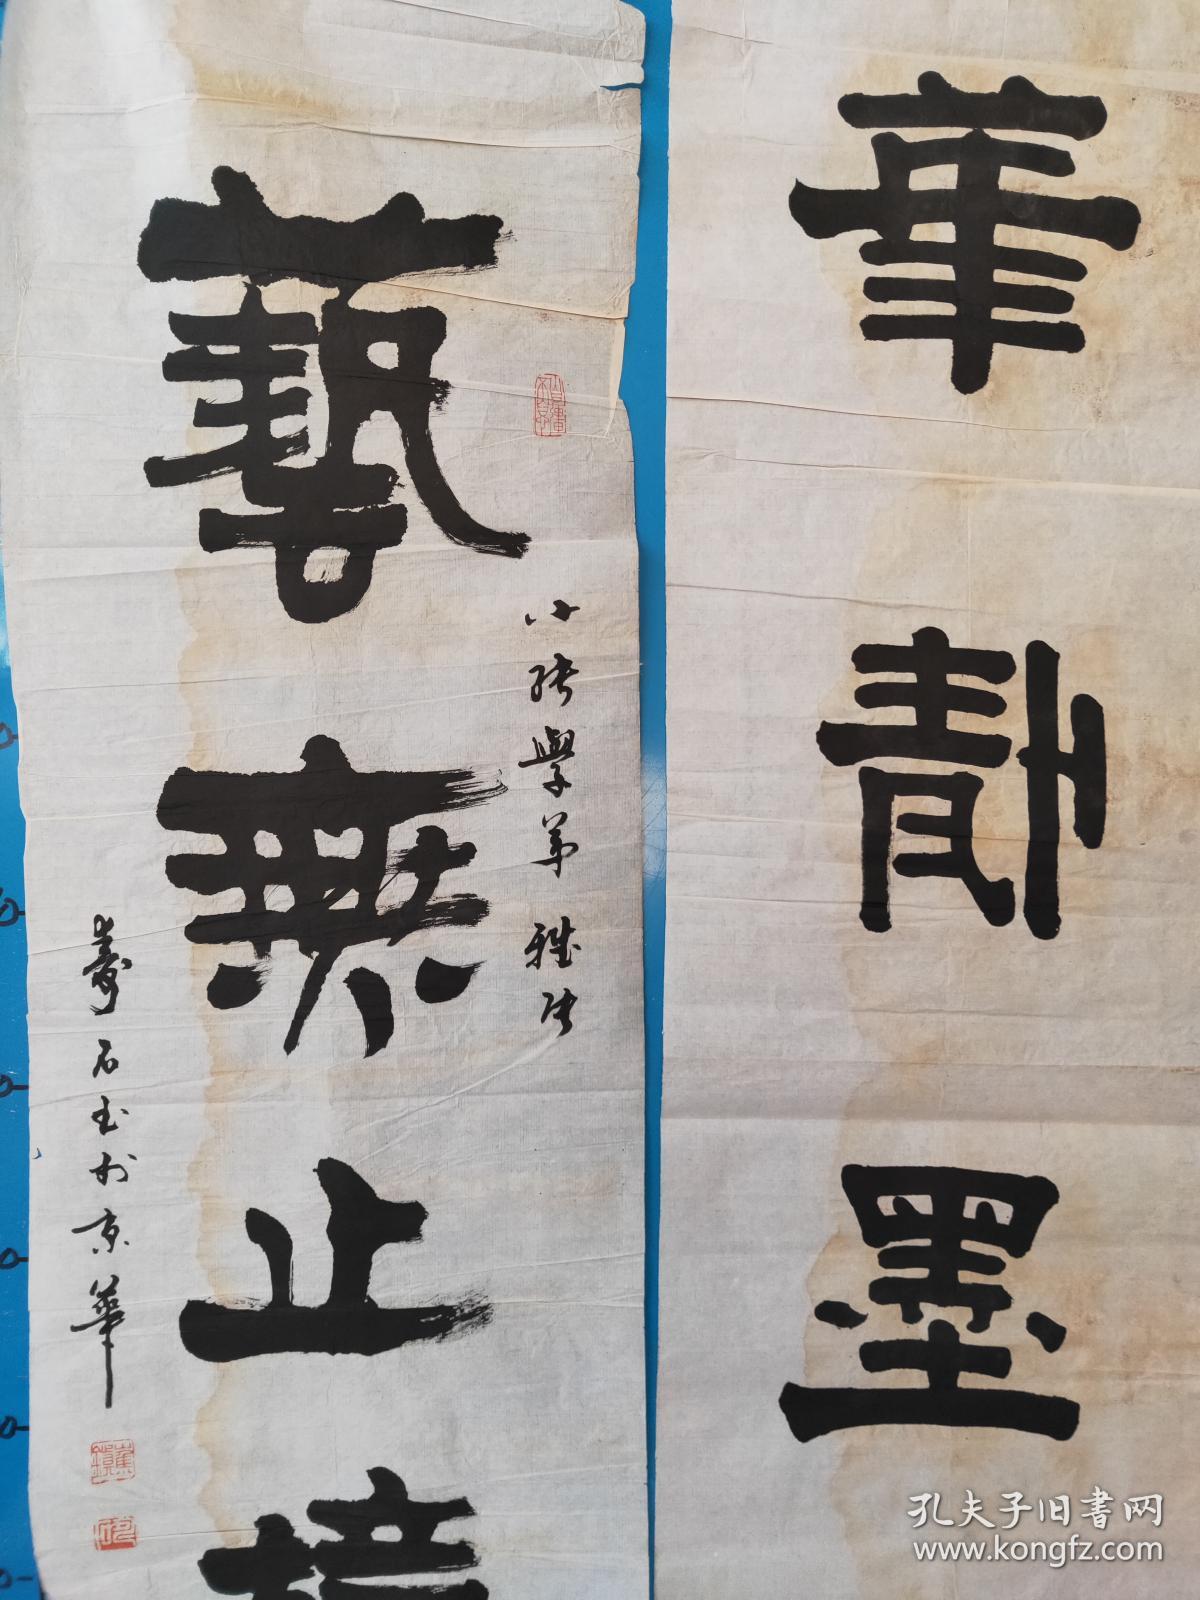 華
墨
藝無止境
小學弟雅
壽石書於京華
孔夫子旧書网
www.kongfz.com